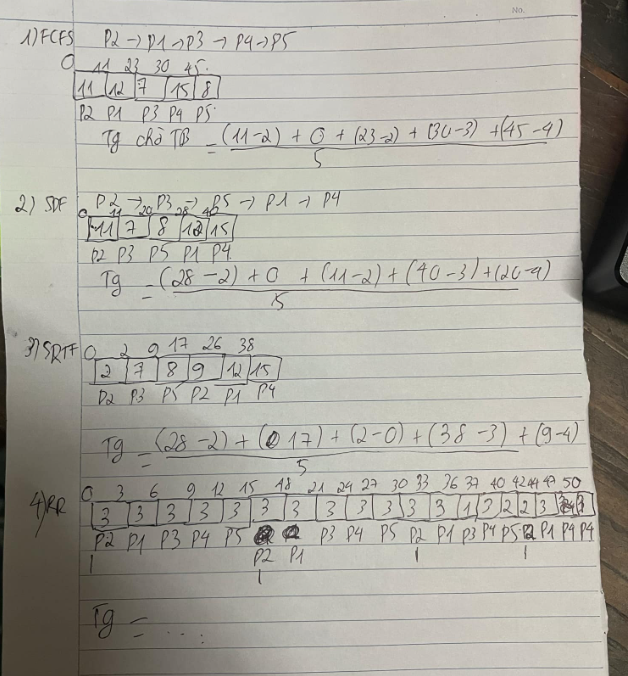 No.
1) FCFS P2 → P1 → P3 → P4 → P5
0 11 23 30 45
11 12 7 15 8
P2 P1 P3 P4 P5
Tg chờ TB = (11-2) + 0 + (23-2) + (30-3) + (45-4)
5
2) SDF P2 → P3 → P5 → P1 → P4
0 11 20 28 40
11 7 8 12 15
P2 P3 P5 P1 P4
Tg = (28-2) + 0 + (11-2) + (40-3) + (20-4)
5
3) SRTF 0 2 9 17 26 38
2 7 8 9 12 15
P2 P3 P5 P2 P1 P4
Tg = (28-2) + (17) + (2-0) + (38-3) + (9-4)
5
4) RR 0 3 6 9 12 15 18 21 24 27 30 33 36 37 40 42 44 47 50
3 3 3 3 3 3 3 3 3 3 3 3 1 3 2 2 3
P2 P1 P3 P4 P5 P3 P4 P5 P2 P1 P3 P4 P5 P2 P1 P4 P4
P2 P1
Tg = ....